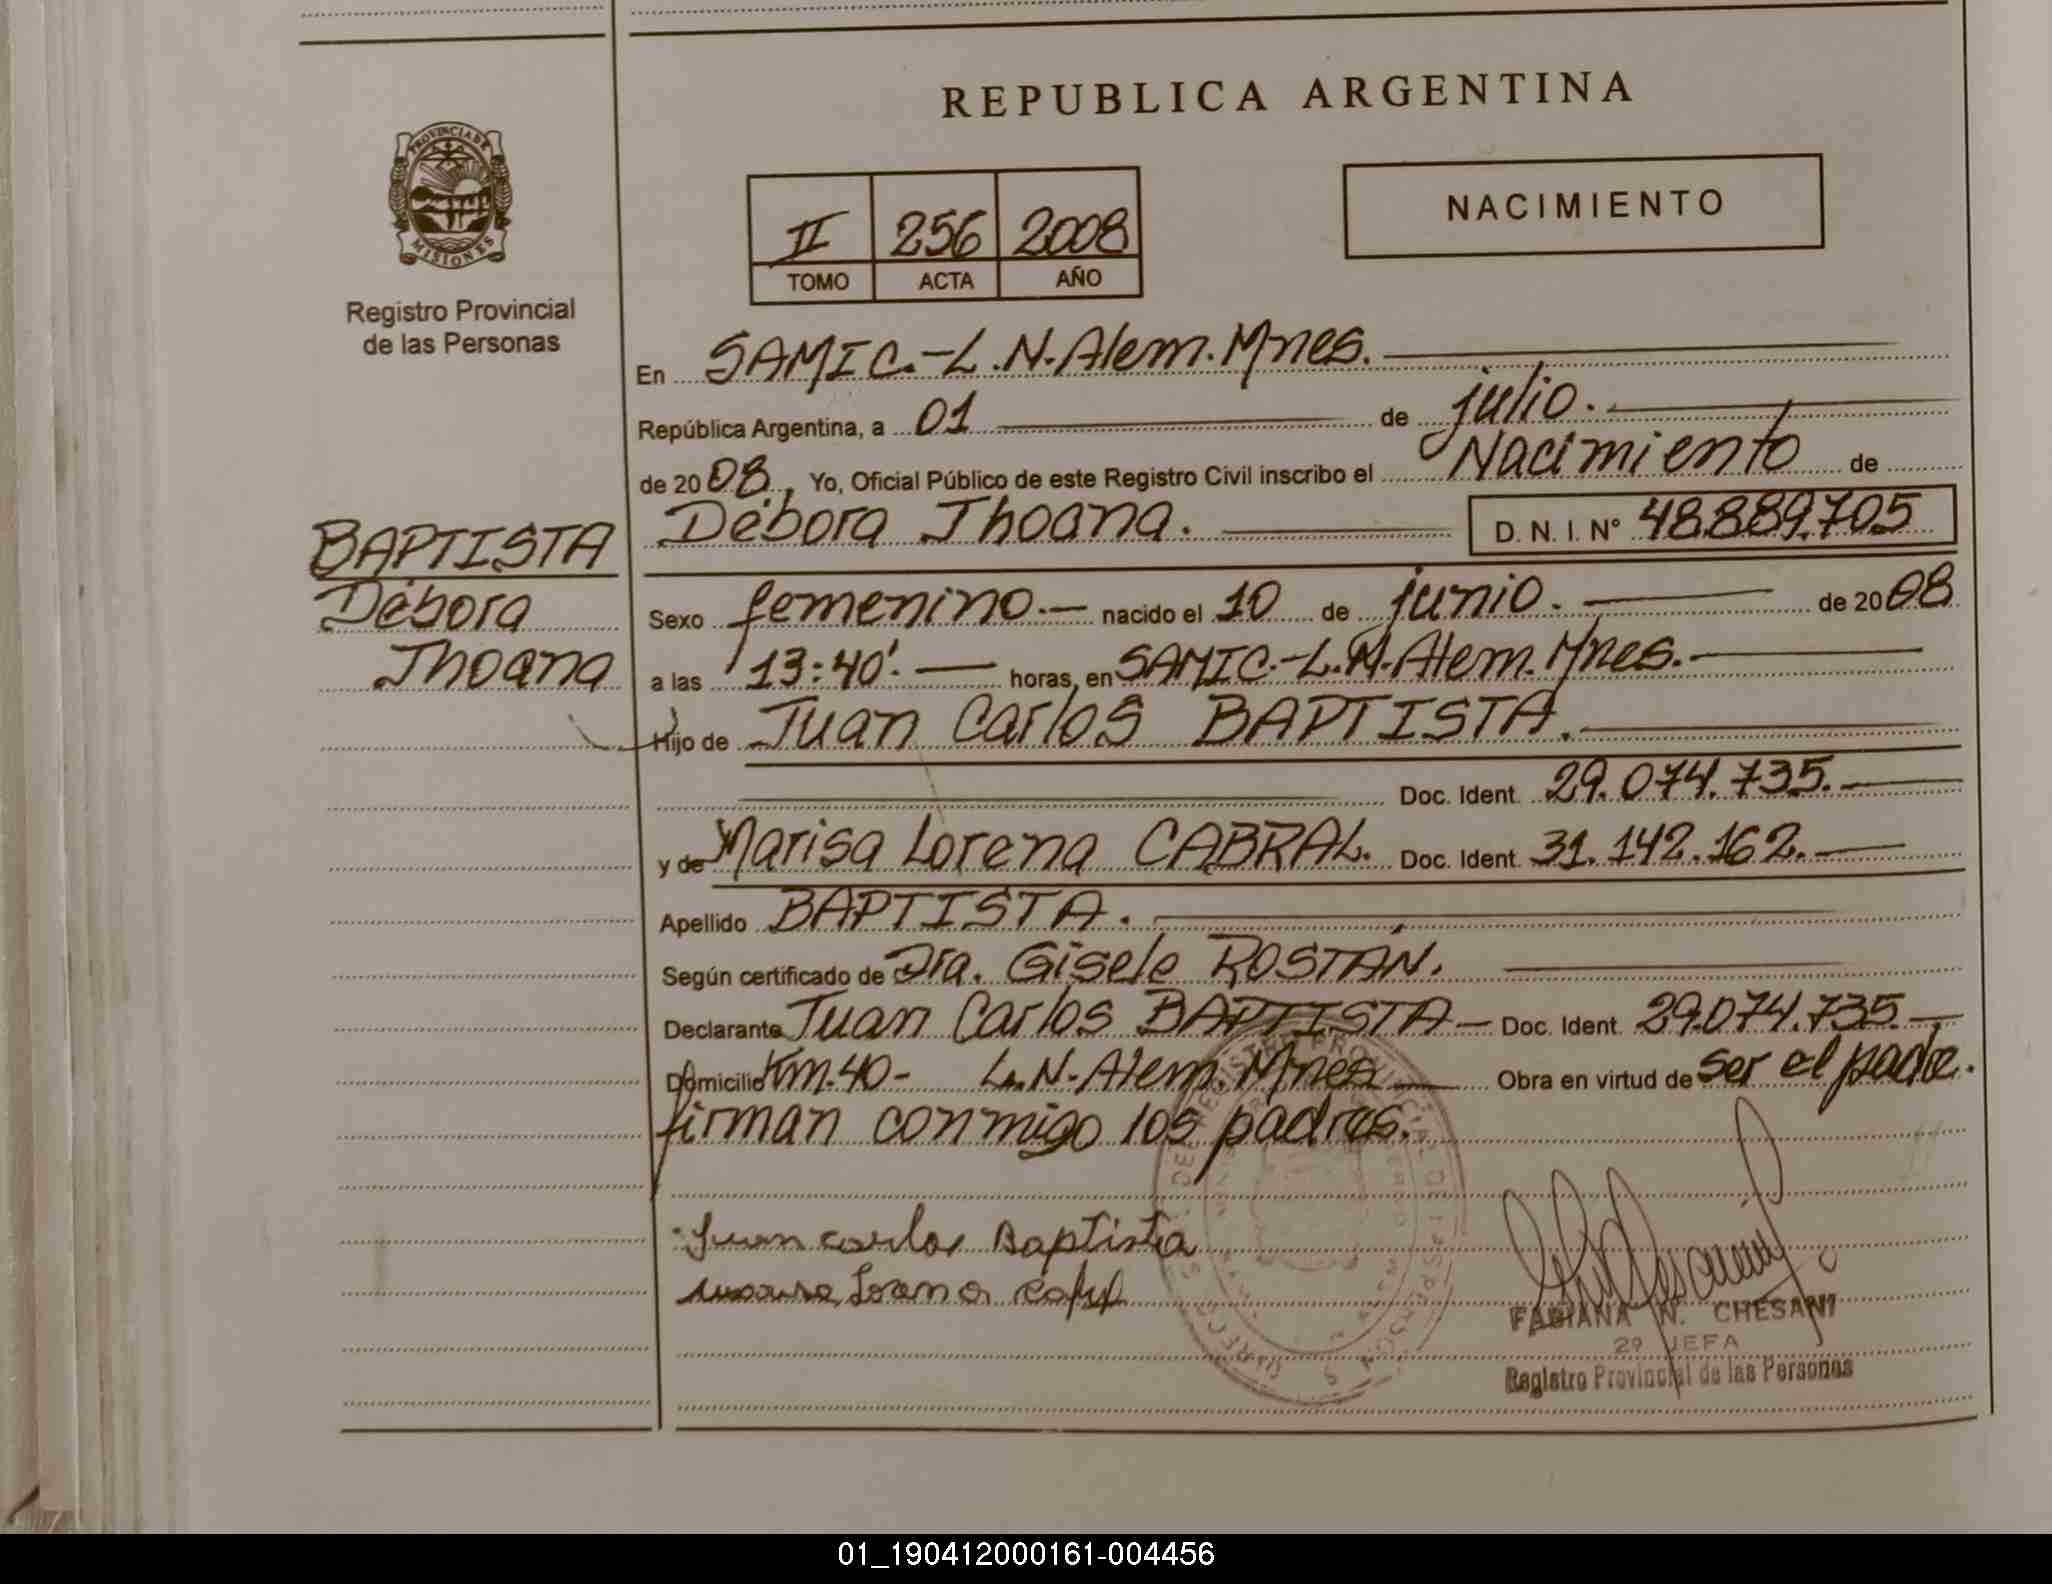 REPUBLICA ARGENTINA
PROVINCIA DE
MISIONES
Registro Provincial
de las Personas
II 256 2008
TOMO ACTA AÑO
NACIMIENTO
En SAMIC.-L.N.Alem.Mnes.
República Argentina, a 01 de julio.
de 2008., Yo, Oficial Público de este Registro Civil inscribo el Nacimiento de
BAPTISTA
Débora
Jhoana
Débora Jhoana. D. N. I. Nº 48.889.705
Sexo femenino.- nacido el 10 de junio. de 2008
a las 13:40'. horas, en SAMIC.-L.N.Alem.Mnes.
Hijo de Juan Carlos BAPTISTA.
Doc. Ident. 29.074.735.
y de Marisa Lorena CABRAL. Doc. Ident. 31.142.162.
Apellido BAPTISTA.
Según certificado de Dra. Gisele ROSTÁN.
Declarante Juan Carlos BAPTISTA - Doc. Ident. 29.074.735.
Domicilio Km.40- L.N.Alem.Mnes Obra en virtud de ser el padre.
firman conmigo los padres.
Juan carlos Baptista
FABIANA N. CHESANI
JEFA
Registro Provincial de las Personas
01_190412000161-004456